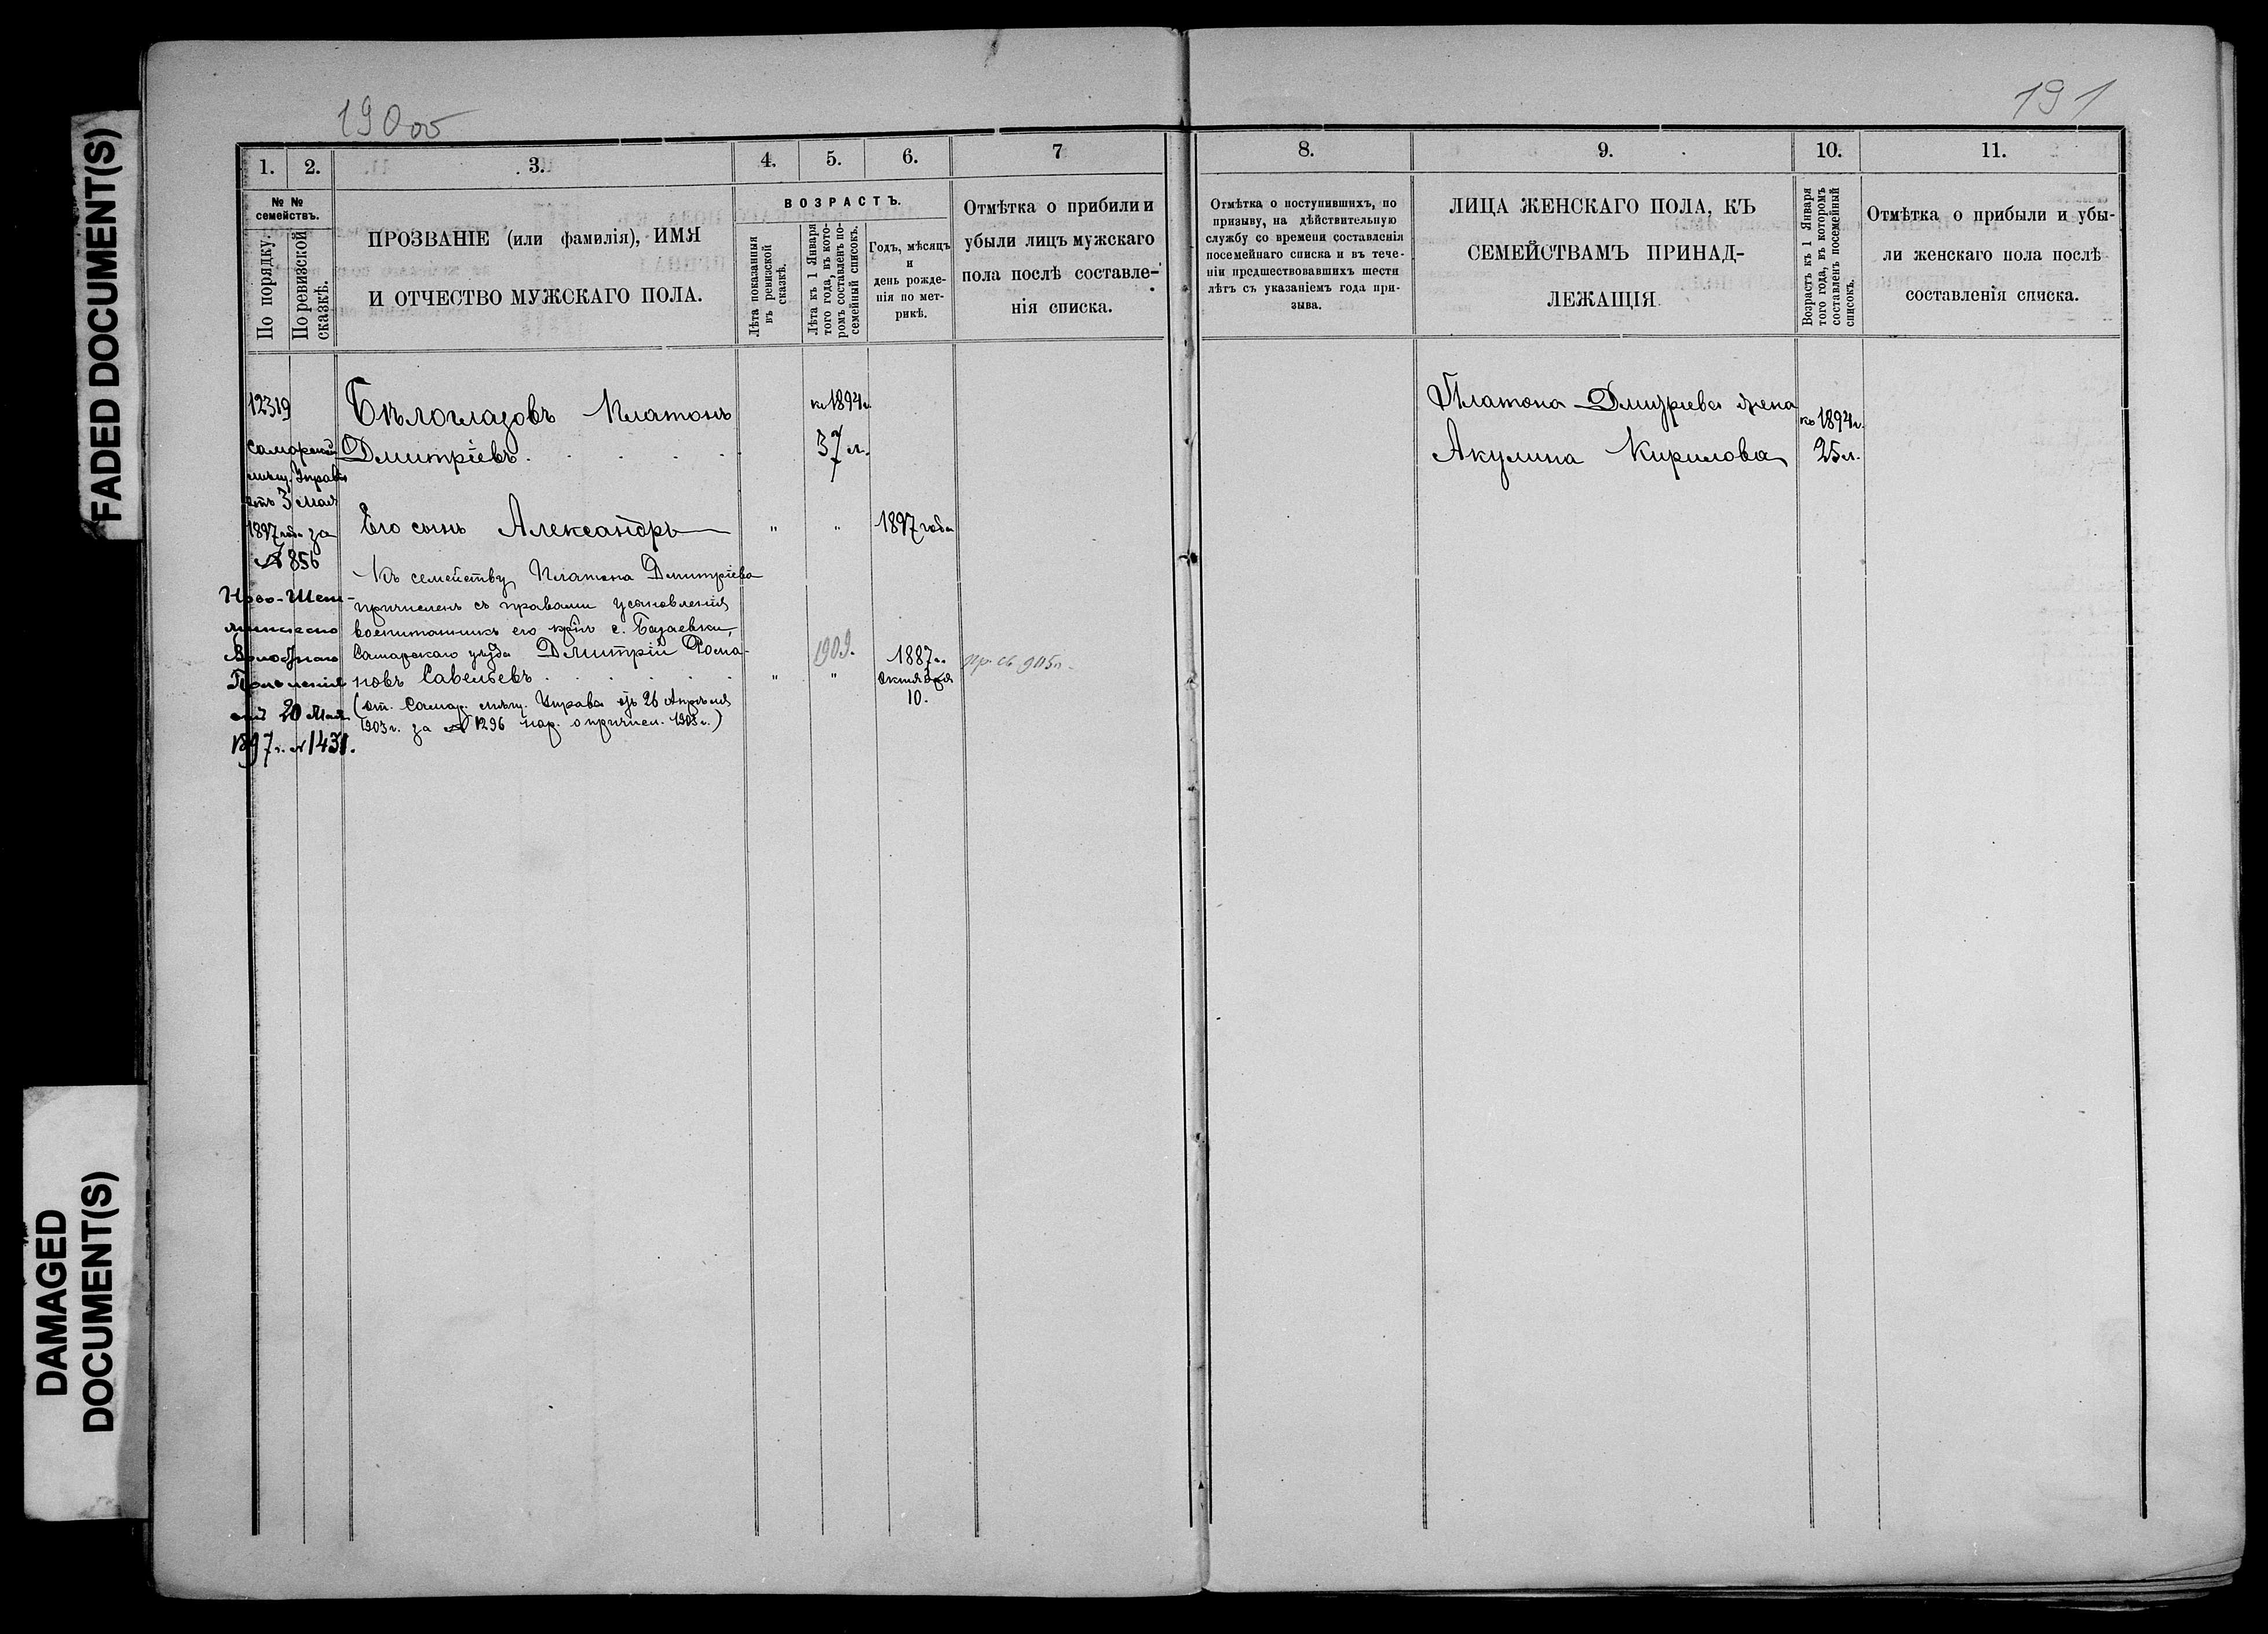 FADED DOCUMENT(S)
DAMAGED
DOCUMENT(S)
190 об
1.
2.
3.
4.
5.
6.
7
№ №
семействъ.
По порядку.
По ревизской
сказкѣ.
ПРОЗВАНІЕ (или фамилія), ИМЯ
И ОТЧЕСТВО МУЖСКАГО ПОЛА.
ВОЗРАСТЪ.
Лѣта показанныя
въ ревизской
сказкѣ.
Лѣта къ 1 Января
того года, въ кото-
ромъ составленъ по-
семейный списокъ.
Годъ, мѣсяцъ
и
день рожде-
нія по мет-
рикѣ.
Отмѣтка о прибили и
убыли лицъ мужскаго
пола послѣ составле-
нія списка.
12319
Самарской
мѣщ. Управы
отъ 3 Мая
1897 года за
№ 856
Ново-Шеш-
минскаго
Волостного
Правленія
отъ 20 Мая
1897 г. № 1431.
Бѣлоглазовъ Платонъ
Дмитріевъ
къ 1894 г.
37 л.
Его сынъ Александръ
" "
1897 года
Къ семейству Платона Дмитріева
причисленъ съ правами усыновленія
воспитанникъ его крѣп. с.
Самарскаго уѣзда Дмитрій Рома-
новъ Савельевъ
(от. Самар. мѣщ. Управы отъ 26 Апрѣля
1903 г. за № 1296 о причисл. 1903 г.)
1909.
" "
1887 г.
Октября
10.
191
8.
9.
10.
11.
Отмѣтка о поступившихъ, по
призыву, на дѣйствительную
службу со времени составленія
посемейнаго списка и въ тече-
ніи предшествовавшихъ шести
лѣтъ съ указаніемъ года при-
зыва.
ЛИЦА ЖЕНСКАГО ПОЛА, КЪ
СЕМЕЙСТВАМЪ ПРИНАД-
ЛЕЖАЩІЯ.
Возрастъ къ 1 Января
того года, въ которомъ
составленъ посемейный
списокъ.
Отмѣтка о прибыли и убы-
ли женскаго пола послѣ
составленія списка.
Платона Дмитріева жена
Акулина Кирилова
къ 1894 г.
25 л.